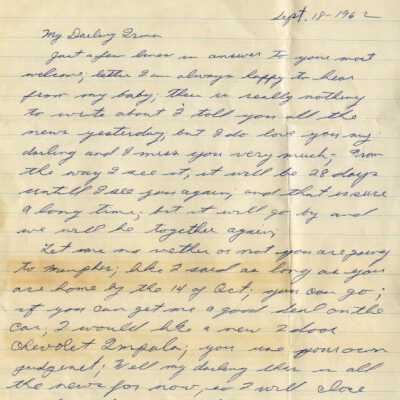 Sept. 18-1962
My Darling Irma
Just a few lines in answer to your most
welcome, letter I am always happy to hear
from my baby; there is really nothing
to write about I told you all the
news yesterday, but I do love you my
darling and I miss you very much; From
the way I see it, it will be 28 days
until I see you again; and that is sure
a long time; but it will go by and
we will be together again,
Let me no wether or not you are going
to Memphis; like I said as long as you
are home by the 14 of Oct; you can go;
if you can get me a good deal on the
car, I would like a new 2 door
Chevolet Impala; you use your own
judgenet; Well my darling this is all
the news for now, so I will close